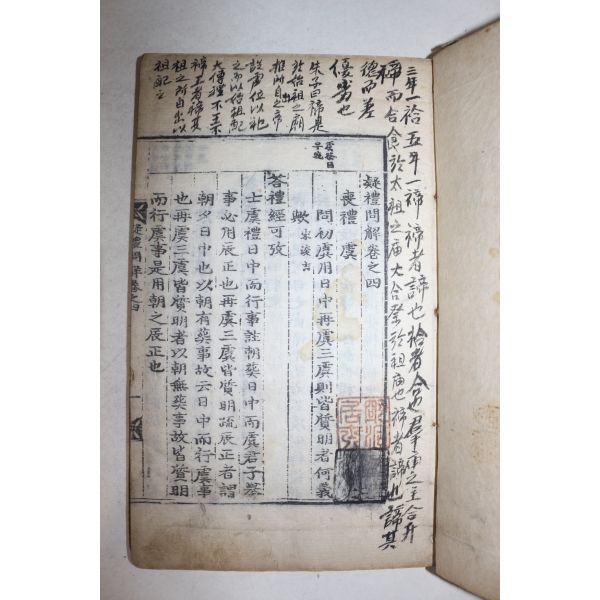 三年一祫五年一禘禘者諦也祫者合也群庙之主合升
禘而合食於太祖之庙大合祭於祖庙也禘者諦也諦其
德而差
優劣也
朱子曰禘是
於始祖之廟
推所自出之帝
設虛位以祀
之而以始祖配
大傳禮不王不
禘王者禘其
祖之所自出以
祖配之
疑禮問解卷之四
喪禮 虞
問初虞用日中再虞三虞則皆質明者何義
歟 宋浚吉
答禮經可攷
士虞禮日中而行事註朝葬日中而虞君子擧
事必用辰正也再虞三虞皆質明疏辰正者謂
朝夕日中也以朝有葬事故云日中而行虞事
也再虞三虞皆質明者以朝無葬事故皆質明
而行虞事是用朝之辰正也
疑禮問解卷之四 一